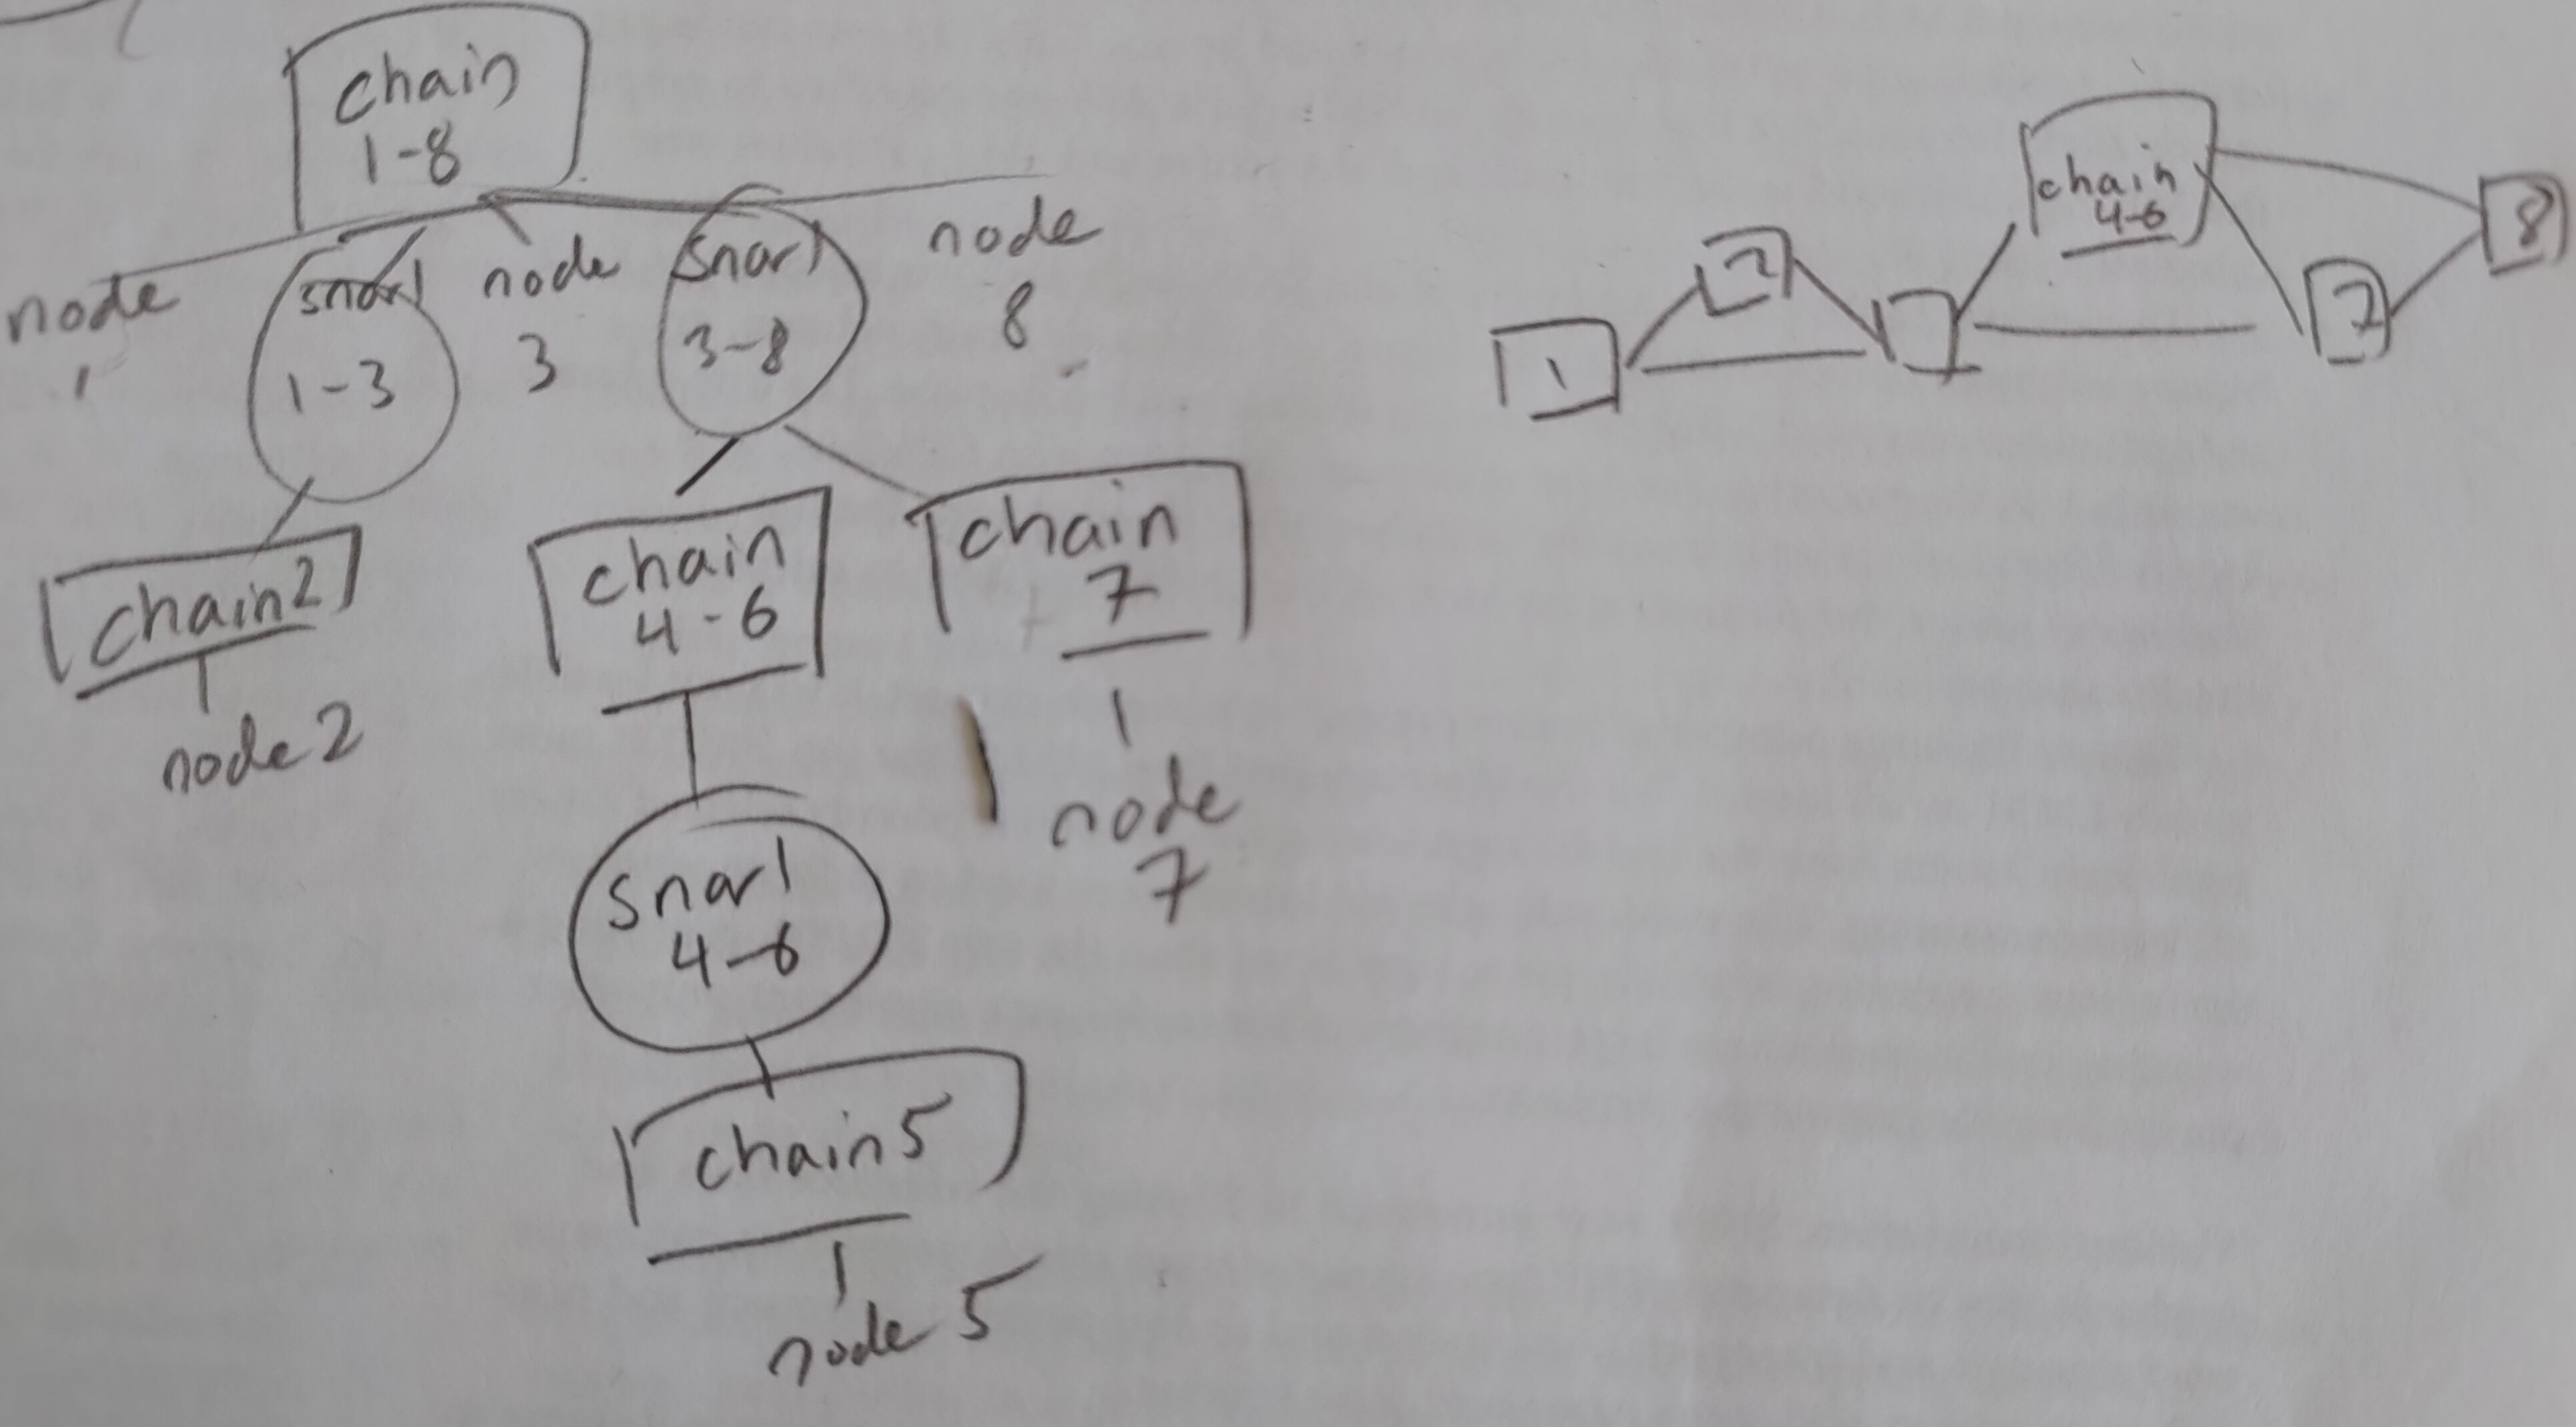 chain
1-8
node
1
snarl
1-3
node
3
snarl
3-8
node
8
chain2
node 2
chain
4-6
chain
7
node
7
snarl
4-6
chain5
node 5
1
2
chain
4-6
7
8